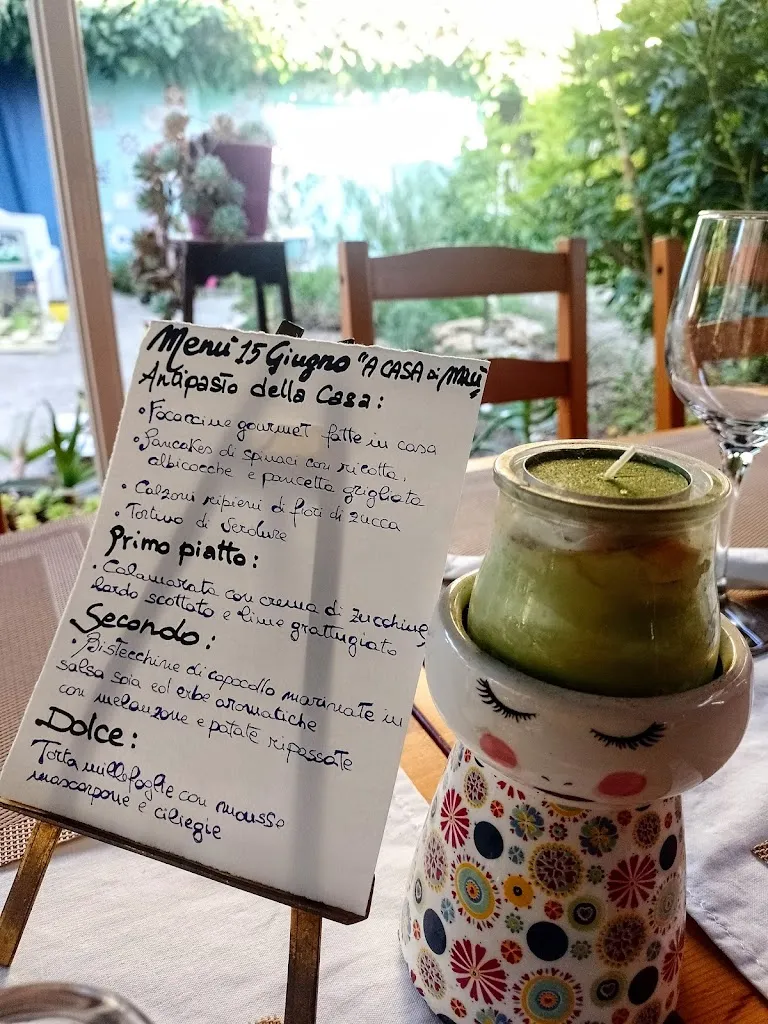 Menù 15 Giugno "A CASA di Milù"
Antipasto della Casa:
• Focaccine gourmet fatte in casa
• Pancakes di spinaci con ricotta,
albicocche e pancetta grigliata
• Calzoni ripieni di fiori di zucca
• Tortino di verdure
Primo piatto:
• Calamarata con crema di zucchine,
lardo scottato e lime grattugiato
Secondo:
• Bistecchine di capocollo marinate in
salsa soia ed erbe aromatiche
con melanzane e patate ripassate
Dolce:
Torta millefoglie con mousse
mascarpone e ciliegie